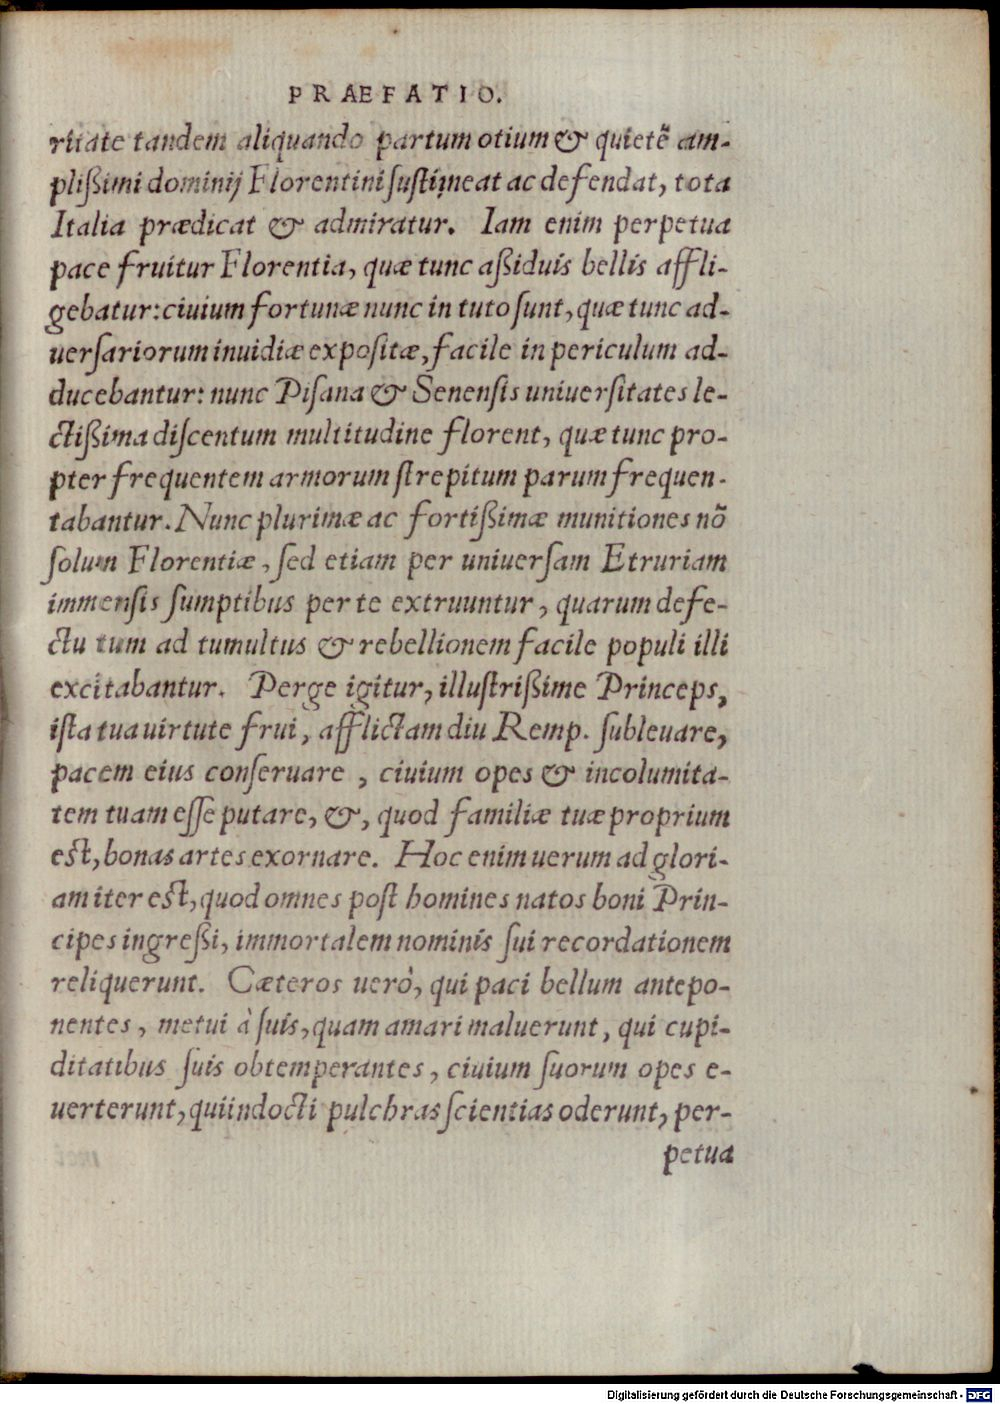 PRAEFATIO.
ritate tandem aliquando partum otium & quietẽ am-
plißimi dominij Florentini sustineat ac defendat, tota
Italia prædicat & admiratur. Iam enim perpetua
pace fruitur Florentia, quæ tunc aßiduis bellis affli-
gebatur: ciuium fortunæ nunc in tuto sunt, quæ tunc ad-
uersariorum inuidiæ expositæ, facile in periculum ad-
ducebantur: nunc Pisana & Senensis uniuersitates le-
ctißima discentum multitudine florent, quæ tunc pro-
pter frequentem armorum strepitum parum frequen-
tabantur. Nunc plurimæ ac fortißimæ munitiones nõ
solum Florentiæ, sed etiam per uniuersam Etruriam
immensis sumptibus per te extruuntur, quarum defe-
ctu tum ad tumultus & rebellionem facile populi illi
excitabantur. Perge igitur, illustrißime Princeps,
ista tua uirtute frui, afflictam diu Remp. subleuare,
pacem eius conseruare, ciuium opes & incolumita-
tem tuam esse putare, &, quod familiæ tuæ proprium
est, bonas artes exornare. Hoc enim uerum ad glori-
am iter est, quod omnes post homines natos boni Prin-
cipes ingreßi, immortalem nominis sui recordationem
reliquerunt. Cæteros uerò, qui paci bellum antepo-
nentes, metui à suis, quam amari maluerunt, qui cupi-
ditatibus suis obtemperantes, ciuium suorum opes e-
uerterunt, qui indocti pulchras scientias oderunt, per-
petua
Digitalisierung gefördert durch die Deutsche Forschungsgemeinschaft - DFG